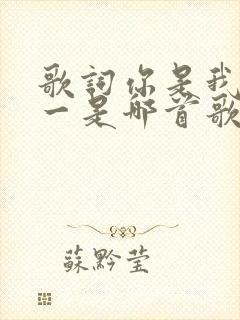 歌詞你是我
一是那首歌
蘇黔莹